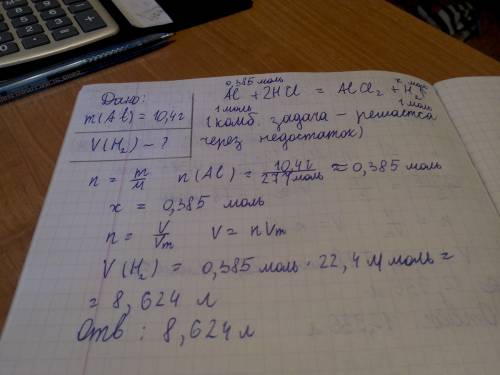 Дано:
m(Al) = 10,4г
V(H₂) - ?
0,385 моль х моль
Al + 2HCl = AlCl₂ + H₂↑
1 моль 1 моль
(комб. задача - решается
через недостаток)
n = m/M n(Al) = 10,4г/27г/моль ≈ 0,385 моль
x = 0,385 моль
n = V/Vm V = nVm
V(H₂) = 0,385 моль · 22,4 л/моль =
= 8,624 л
Отв: 8,624 л